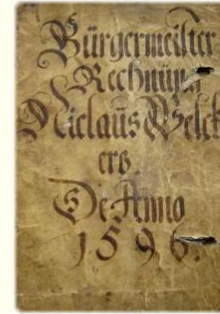 Bürgermeister
Rechnung
Niclauß Welck
ers
De Anno
1596.